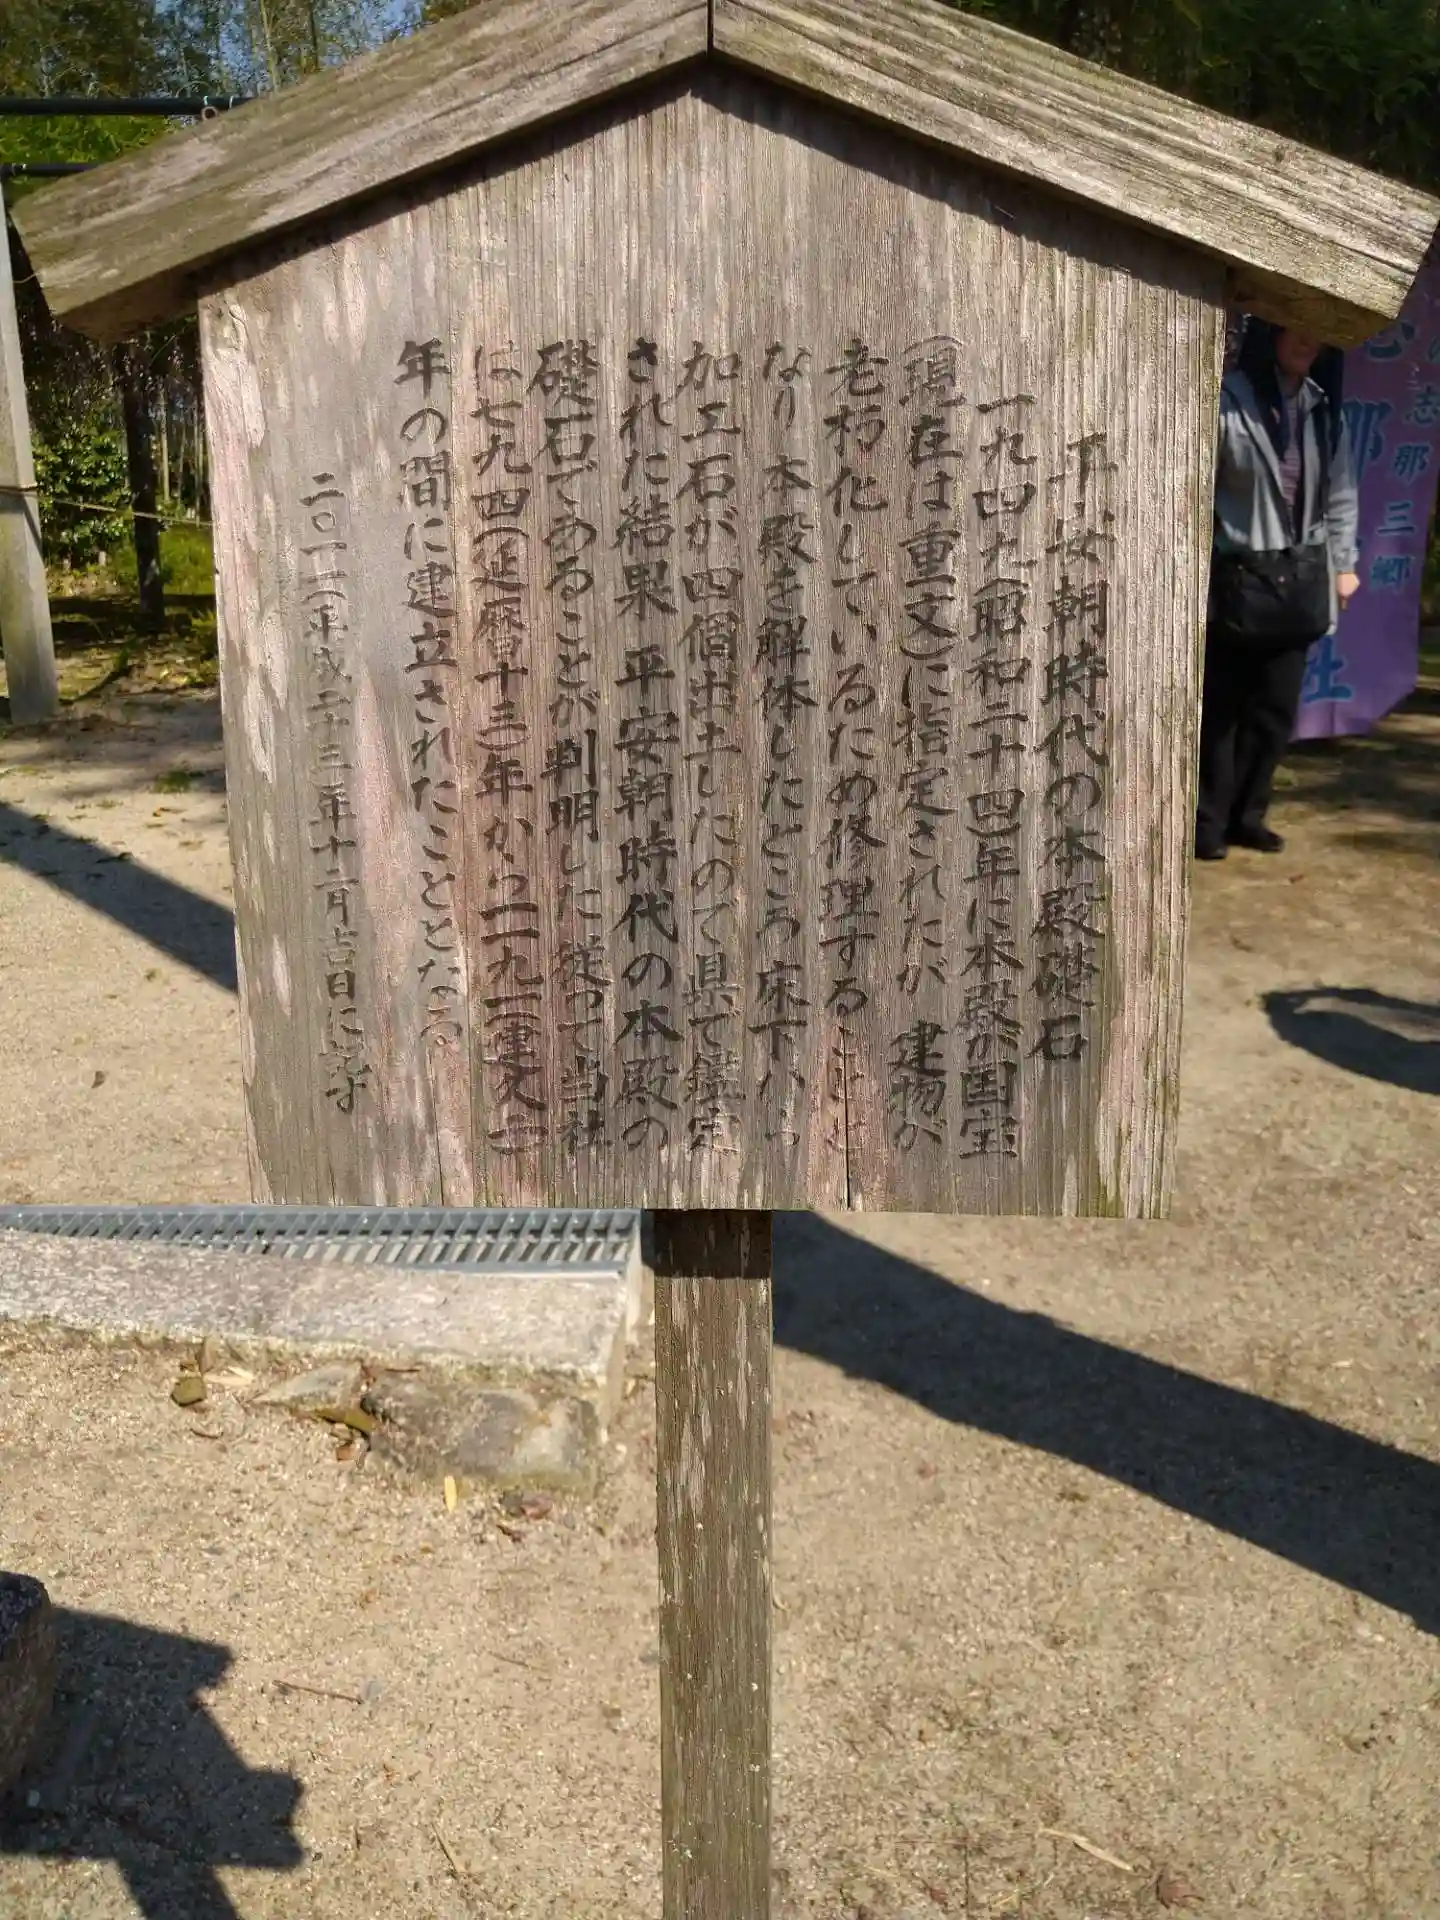 平安朝時代の本殿礎石
一九四九(昭和二十四)年に本殿が国宝
(現在は重文)に指定されたが 建物が
老朽化しているため修理することと
なり 本殿を解体したところ 床下から
加工石が四個出土したので県で鑑定
された結果 平安朝時代の本殿の
礎石であることが判明した 従って当社
は七九四(延暦十三)年から一一九一(建久二)
年の間に建立されたこととなる
二〇一一(平成二十三)年十二月吉日に記す
志那三郷